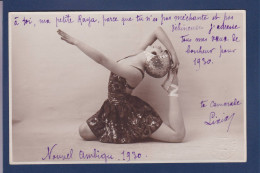 à toi, ma petite Kaya, parce que tu n'es pas méchante et pas
j'adresse
tous mes vœux de
bonheur pour
1930.
ta camarade
Nouvel Ambigu 1930.